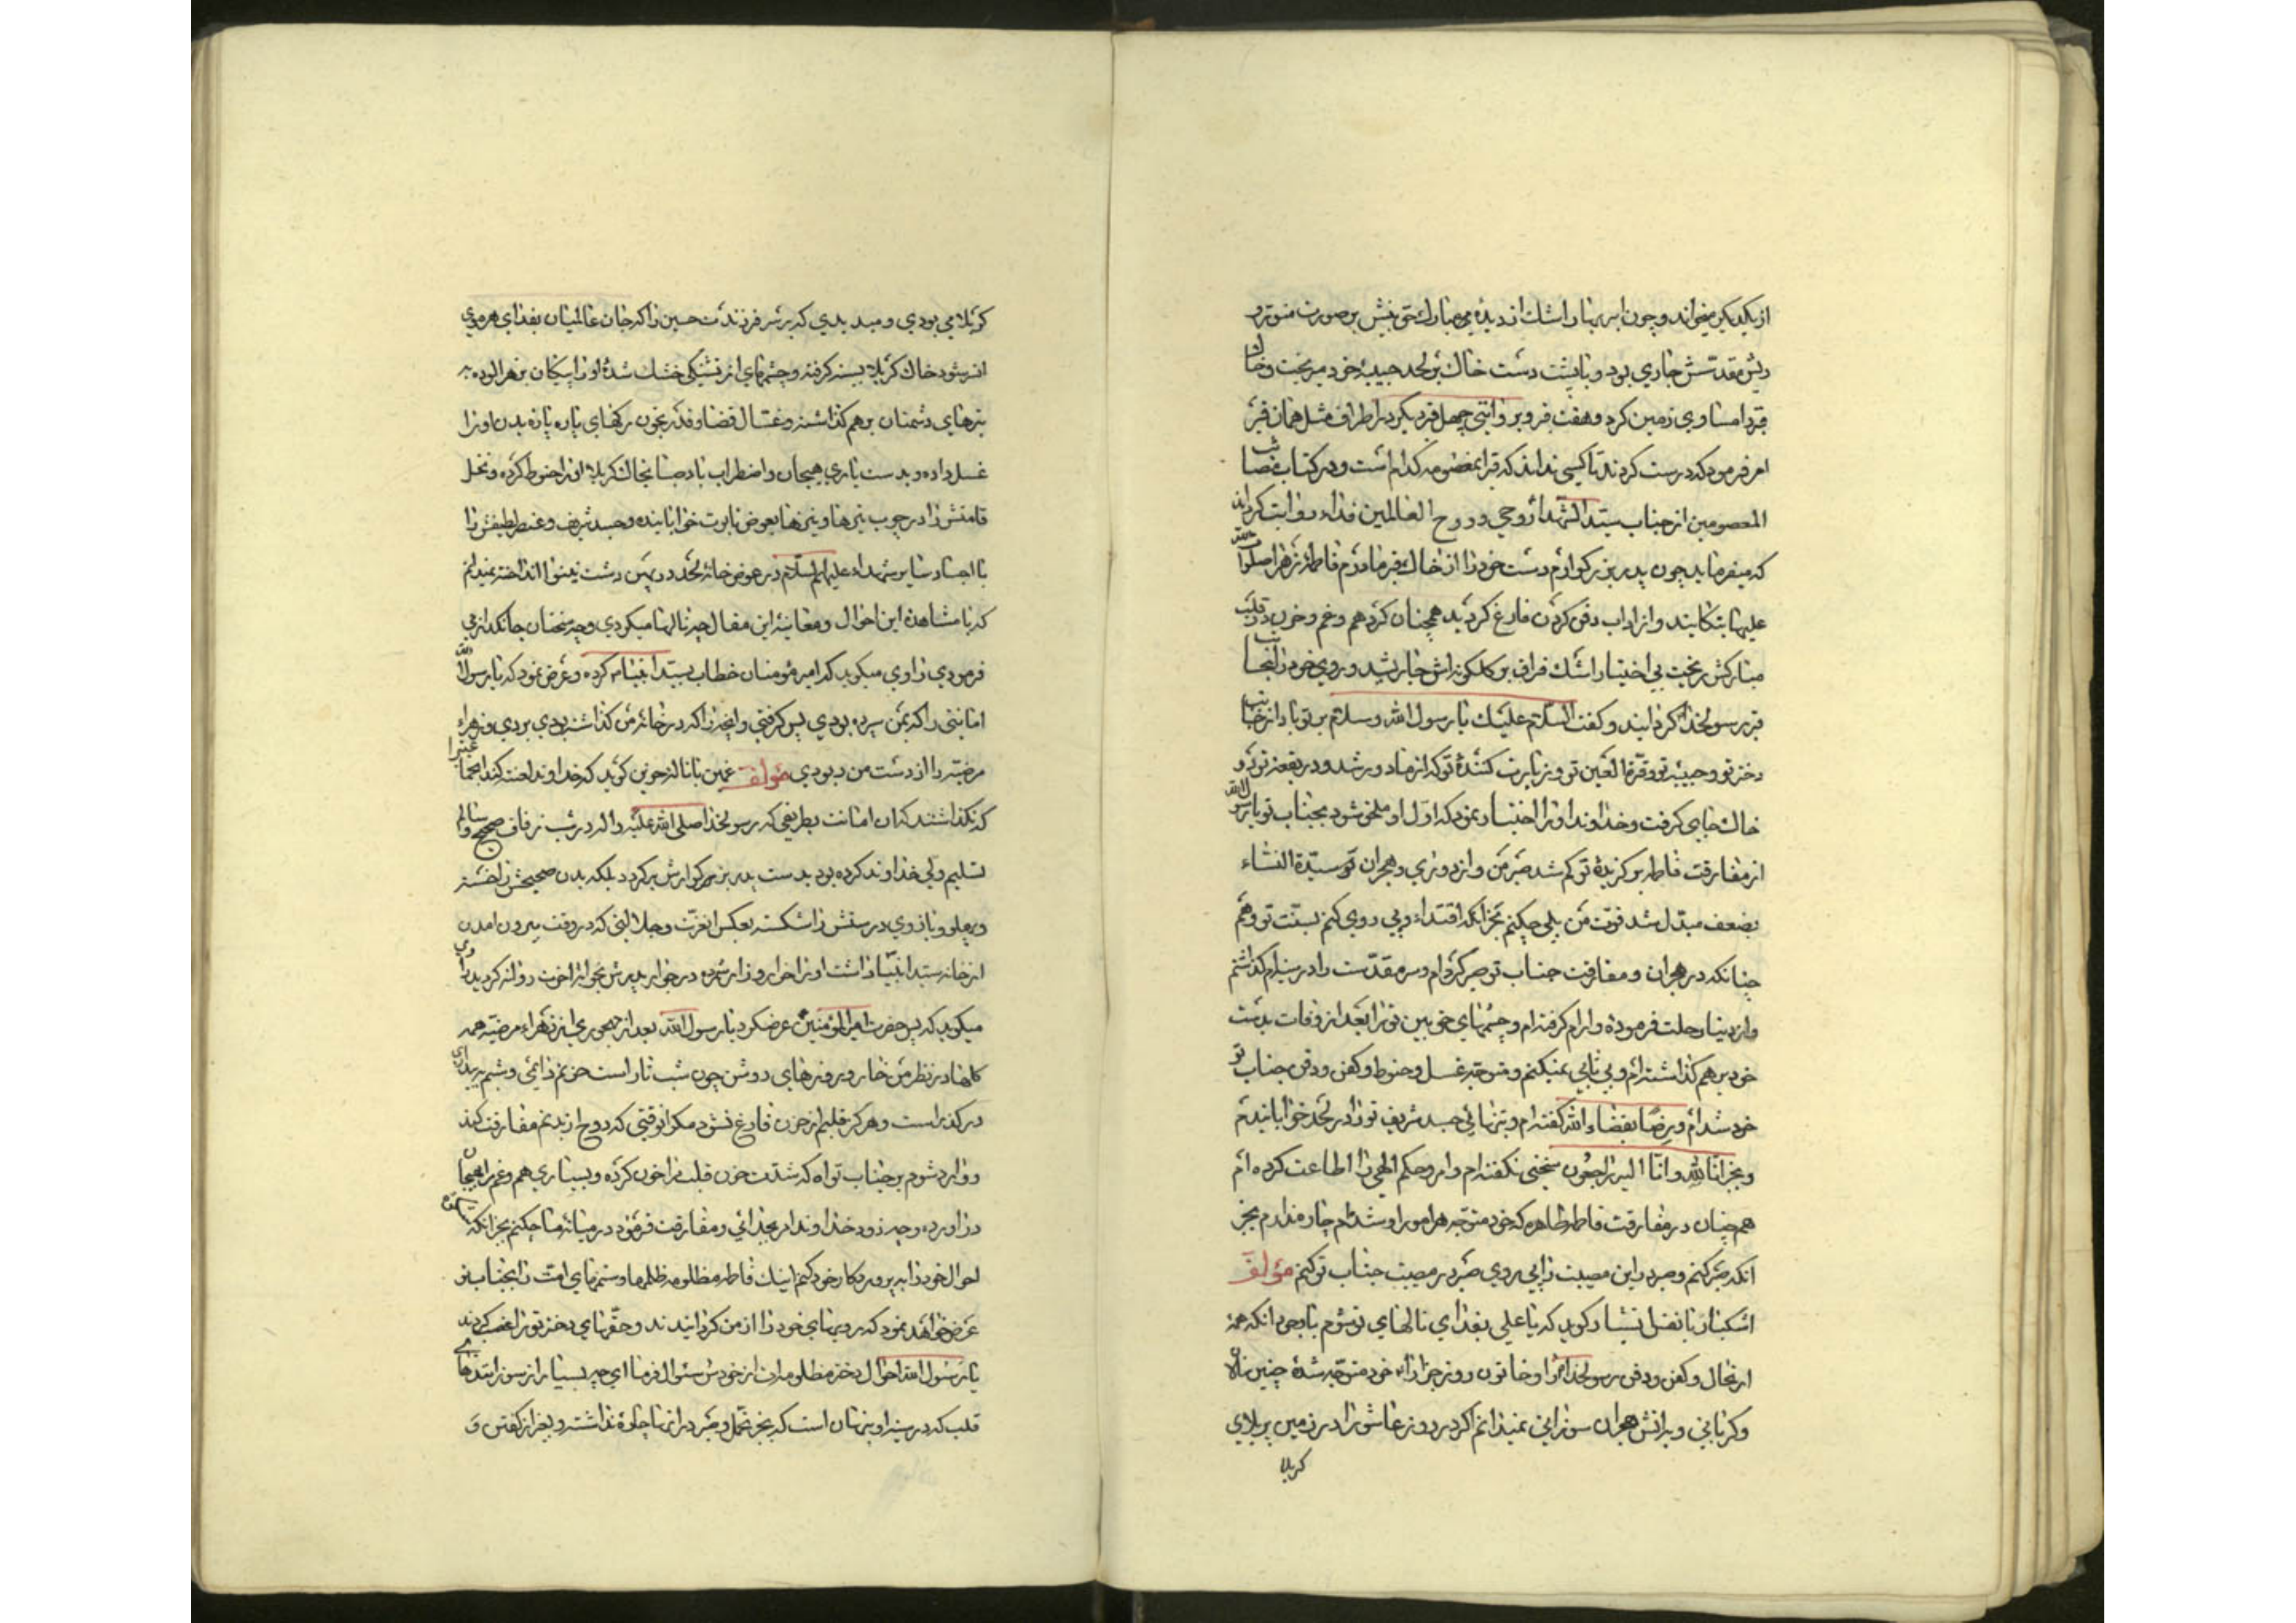 از یکدیگر میخواند و چون ابر بهار اشک از دیدهٔ مبارک حق بینش بر صورت منور و
ریش مقدسش جاری بود و با پشت دست خاک بر لحد حبیبهٔ خود میریخت و خاک
قبر را مساوی زمین کرد و هفت قبر و بروایتی چهل قبر دیگر در اطراف مثل همان قبر
امر فرمود که درست کردند تا کسی نداند که قبر معصومه کدام است و در کتاب مصائب
المعصومین از جناب سید الشهداء روحی و روح العالمین فداه روایت کرده اند
که میفرماید چون پدر بزرگوارم دست خود را از خاک قبر مادرم فاطمه زهرا صلوات الله
علیها بتکانید و از آداب دفن کردن فارغ گردید هیجان کرد هم و غم و حزن در قلب
مبارکش ریخت بی اختیار اشک فراق بر گلگونه اش جاری شد و روی خود را بجانب
قبر رسولخدا گردانید و گفت السلام علیک یا رسول الله و سلام بر تو باد از جانب
دختر تو و حبیبه تو و قرة العین تو و زیارت کنندهٔ تو که از ما دور شد و در بقعه تو در
خاک جای گرفت و خداوند او را اختیار نمود که اول او ملحق شود بجناب تو یا رسول الله
از مفارقت فاطمه برگزیدهٔ تو کم شد صبر من و از دوری و هجران تو سیدة النساء
بضعف مبدل شد قوت من بلی چکنم بجز آنکه اقتداء و پی روی کنم بسنت تو و هم
چنانکه در هجران و مفارقت جناب تو صبر کرده ام و سر مقدست را در سینه ام گذاشتم
و از دنیا رحلت فرموده و آرام گرفته ام و چشمهای حق بین تو را بعد از وفات بدست
خود بر هم گذاشته ام و بی تابی نمیکنم و متوجه غسل و حنوط و کفن و دفن جناب تو
خود شدام و رضا بقضاء الله گفته ام و بتنهائی جسد شریف تو را در لحد خوابانیدم
و بجز انا لله و انا الیه راجعون سخنی نگفته ام و امر و حکم الهی را اطاعت کرده ام
هم چنان در مفارقت فاطمه طاهره که خود متوجه هر امور او شدم چاره ندارم بجز
آنکه صبر کنم و صبر در این مصیبت را پی روی صبر در مصیبت جناب تو کنم مؤلف
اشکبار با نفس گوید که یا علی بفدای نالهای تو شوم با وجود آنکه همه
ارتحال و کفن و دفن رسولخدا را و خاتون روز جزا را خود متوجه شدهٔ چنین نالان
و گریانی و بر آتش هجران سوزانی نمیدانم اگر در روز عاشورا در زمین پر بلای
کربلا
کربلا می بودی و میدیدی که بر سر فرزندت حسین را که جان عالمیان بفدای هر موی
از سرش شود خاک کربلا بسته گرفته و چشمهای از تشنگی خشک شدهٔ او را پیکان زهر آلوده
تیرهای دشمنان بر هم گذاشته و غسال قضا و قدر بخون رگهای پاره پاره بدن او را
غسل داده و بدست یاری هیجان و اضطراب باد صبا بخاک کربلا او را حنوط کرده و نخل
قامتش را در چوب تیرها و نیزها بعوض تابوت خوابانیده و جسد شریف و عنصر لطیفش را
با اجساد سایر شهداء علیهم السلام در عوض خانه لحد در پهن دشت نینوا انداخته نمیدانم
که با مشاهده این احوال و معاینهٔ این مقال چه نالها میکردی و چه سخنان جانگداز می
فرمودی راوی میگوید که امیر مؤمنان خطاب بسید انبیاء کرده و عرض نمود که یا رسول الله
امانتی را که بمن سپرده بودی پس گرفتی و آنچه را که در خانه من گذاشته بودی بردی و زهراء
مرضیه را از دست من ربودی مؤلف غمین با ناله حزین گوید که خداوند لعنت کند اجماعتیرا
که نگذاشتند که آن امانت بطریقی که رسولخدا صلی الله علیه و اله در شب زفاف صحیح و سالم
تسلیم ولی خداوند کرده بود بدست پدر بزرگوارش برگردد بلکه بدن صحیحش را خسته
و پهلو و بازوی درستش را شکسته بعکس آن عزت و جلالتی که در وقت بیرون آمدن
از خانه سید انبیا داشت او را خوار و زار نموده در جوار پدرش بجوار آخرت روانه کردید راوی
میگوید که پس حضرت امیر المؤمنین عرض کرد یا رسول الله بعد از مهجوری از زهراء مرضیه همه
گلها در نظر من خار و روزهای روشن چون شب تار است حزنم دائمی و شبم به بیداری
در گذر است و هرگز قلبم از حزن فارغ نشود مگر آنوقتی که روح از بدنم مفارقت کند
و وارد شوم بر جناب تو آه که شدت حزن قلب مرا خون کرده و بسیاری هم و غم مرا بهیجان
در آورده و چه زود خداوند امر بجدائی و مفارقت فرمود در میانه ما چکنم بجز آنکه
احوال خود را به پروردگار خود کنم اینک فاطمه مظلومه ظلمها و ستمهای امت را بجناب تو
عرض خواهد نمود که رویهای خود را از من گردانیدند و حقهای دختر تو را غصب کردند
یا رسول الله احوال دختر مظلومه ات از خودش سئوال فرما ای چه بسیار از سوز
قلب که در سینه او پنهان است که بجز تحمل و صبر در آنها چارهٔ نداشت و بغیر از گفتن و